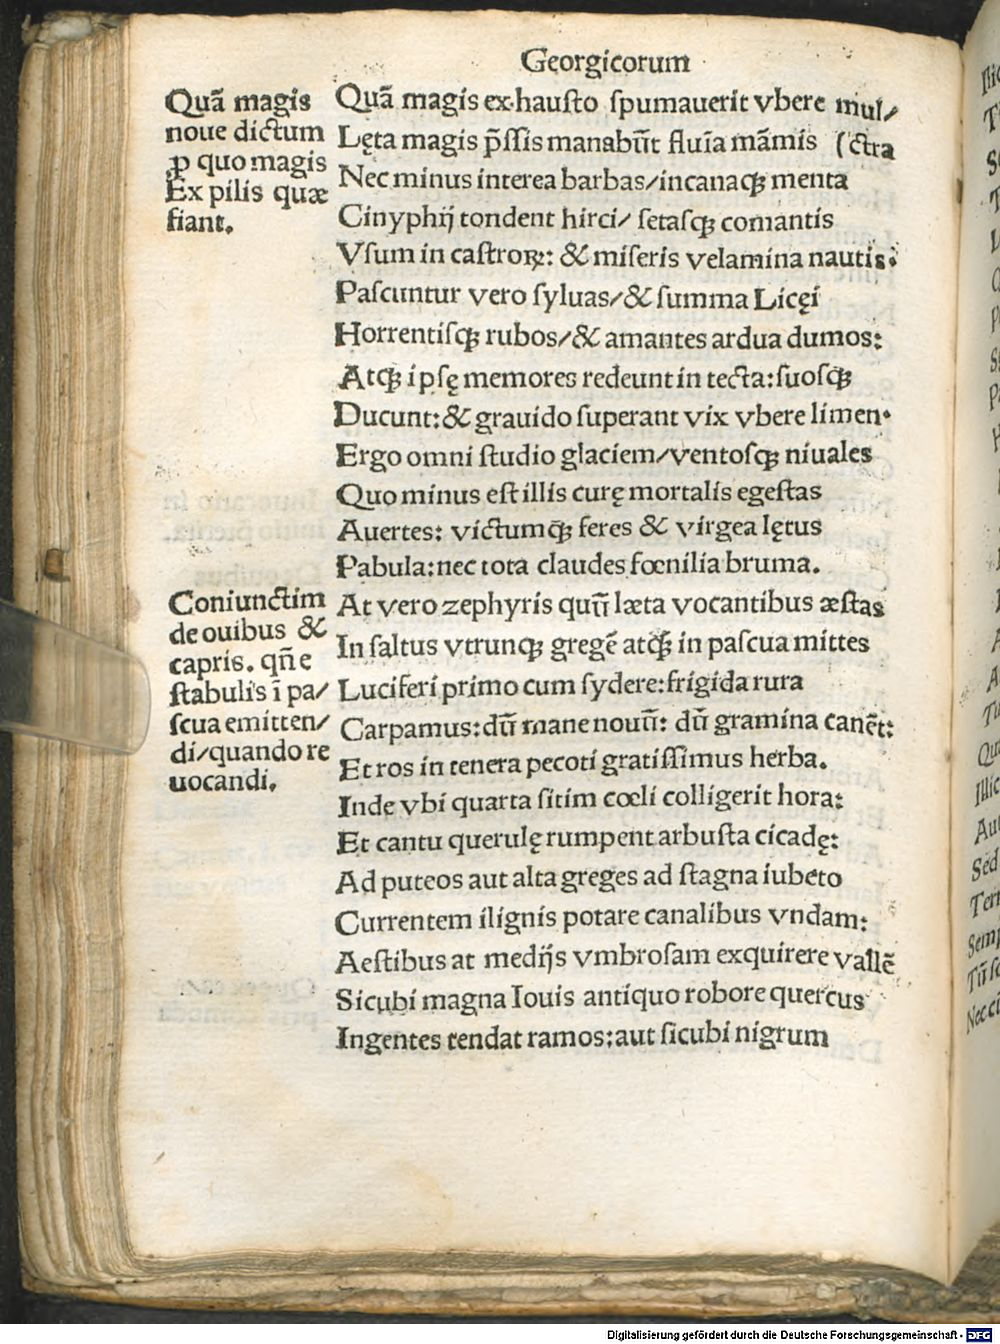 Georgicorum
Quã magis
noue dictum
ꝓ quo magis
Ex pilis quæ
fiant.
Quã magis ex·hauſto ſpumauerit vbere mul/
Lęta magis p̃ſſis manabũt fluĩa mãmis (ctra
Nec minus interea barbas/incanaqꝫ menta
Cinyphij tondent hirci/ ſetaſqꝫ comantis
Vſum in caſtroꝝ: & miſeris velamina nautis:
Paſcuntur vero ſyluas/& ſumma Licęi
Horrentiſqꝫ rubos/& amantes ardua dumos:
Atqꝫ ipſę memores redeunt in tecta:ſuoſqꝫ
Ducunt:& grauido ſuperant vix vbere limen.
Ergo omni ſtudio glaciem/ventoſqꝫ niuales
Quo minus eſt illis curę mortalis egeſtas
Auertes: victumqꝫ feres & virgea lętus
Pabula:nec tota claudes fœnilia bruma.
Coniunctim
de ouibus &
capris. qñe
ſtabulis ĩ pa/
ſcua emitten/
di/quando re
uocandi.
At vero zephyris quũ læta vocantibus æſtas
In ſaltus vtrunqꝫ gregẽ atqꝫ in paſcua mittes
Luciferi primo cum ſydere:frigida rura
Carpamus:dũ mane nouũ: dũ gramina canẽt:
Et ros in tenera pecoti gratiſſimus herba.
Inde vbi quarta ſitim cœli colligerit hora:
Et cantu querulę rumpent arbuſta cicadę:
Ad puteos aut alta greges ad ſtagna iubeto
Currentem ilignis potare canalibus vndam:
Aeſtibus at medijs vmbroſam exquirere vallẽ
Sicubi magna Iouis antiquo robore quercus
Ingentes tendat ramos:aut ſicubi nigrum
Digitalisierung gefördert durch die Deutsche Forschungsgemeinschaft - DFG